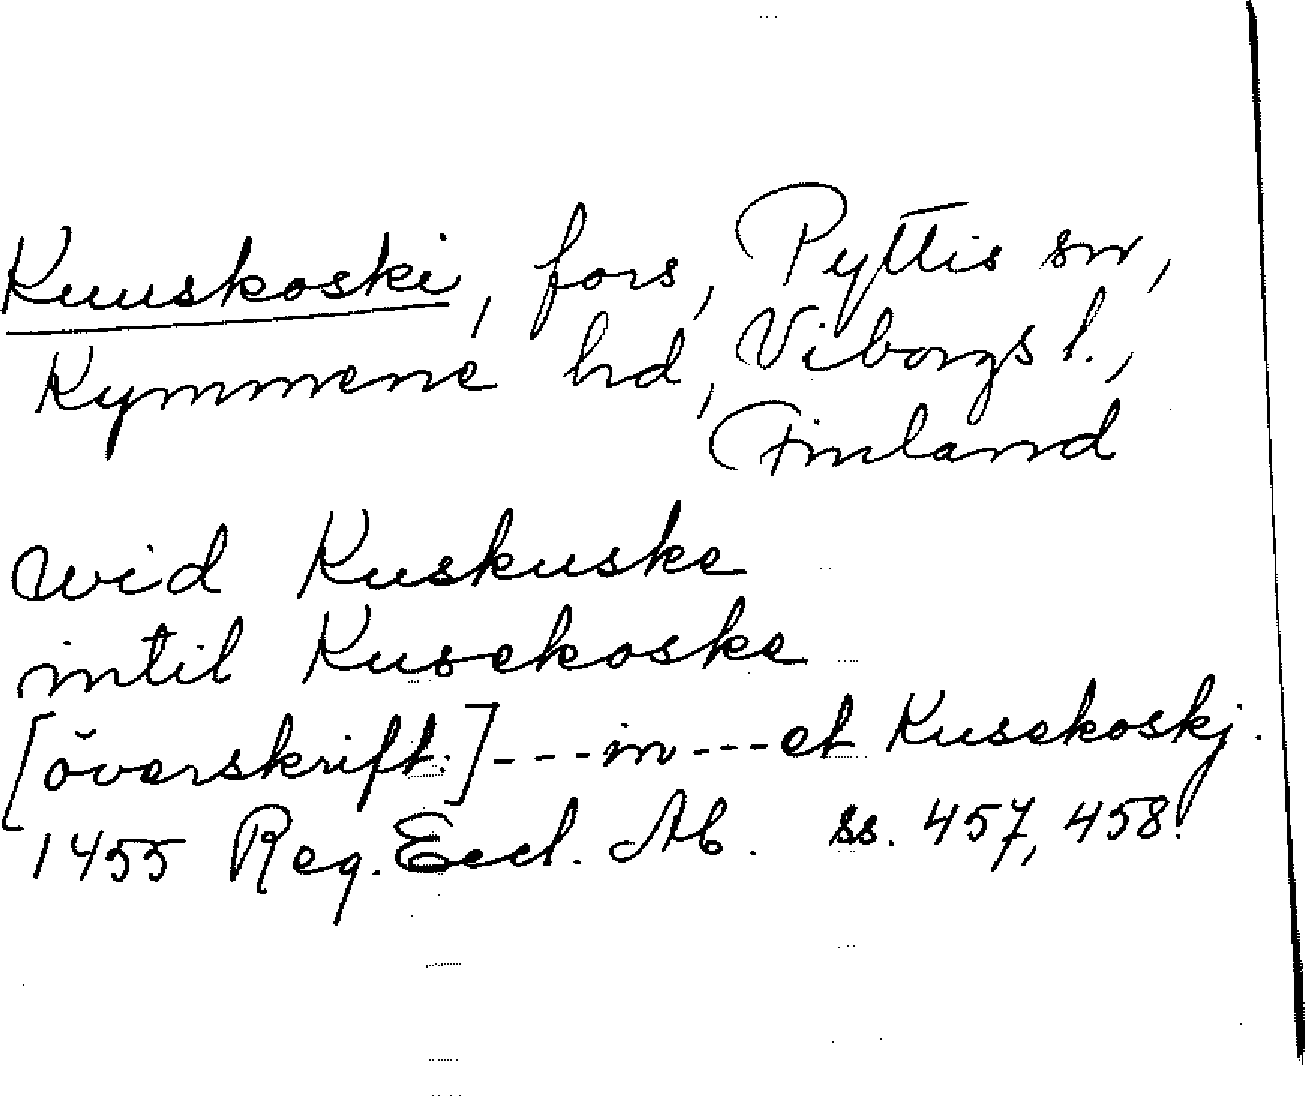 Kuuskoski, fors, Pyttis sn,
Kymmene hd, Viborgs l.,
Finland
wid Kuskuske
intil Kusekoske
[överskrift.] --- in --- et Kusekoskj.
1455 Reg. Eccl. Ab. ss. 457, 458.